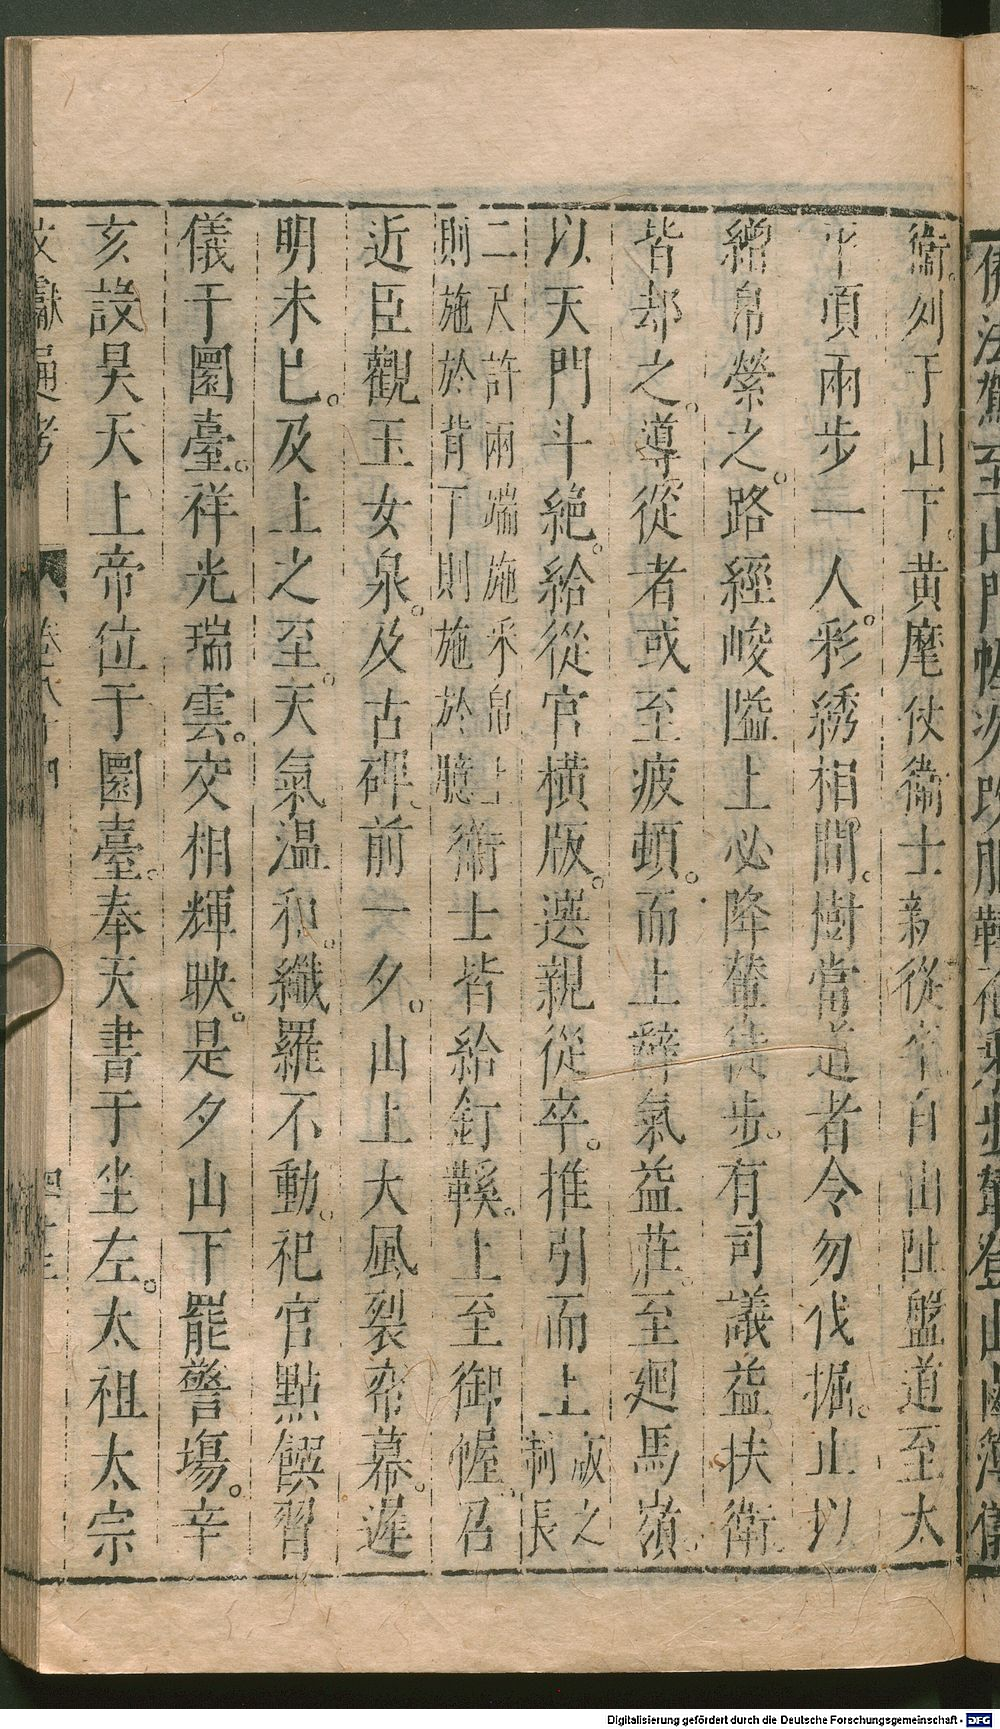 備法駕至山門幄次改服鞾袍乘步輦登山鹵簿儀
衞。列于山下。黄麾仗衞士親從卒自山趾盤道至太
平頂兩步一人。彩綉相間。樹當道者令勿伐掘。止以
繒帛縈之。路經峻隘上必降輦徒步。有司議益扶衛。
皆却之。導從者或至疲頓。而上辭氣益莊。至廻馬嶺。
以天門斗絶。給從官横版。選親從卒。推引而上版之制長
二尺許兩端施釆帛上則施於背下則施於臆衞士皆給釘鞵。上至御幄。召
近臣觀玉女泉。及古碑。前一夕。山上大風裂帟幕。遲
明未已。及上之至。天氣温和。纖羅不動。祀官點饌習
儀于圜臺。祥光瑞雲。交相輝映。是夕山下罷警塲。辛
亥設昊天上帝位于圜臺。奉天書于坐左。太祖太宗
文獻通考 卷八十四
Digitalisierung gefördert durch die Deutsche Forschungsgemeinschaft - DFG